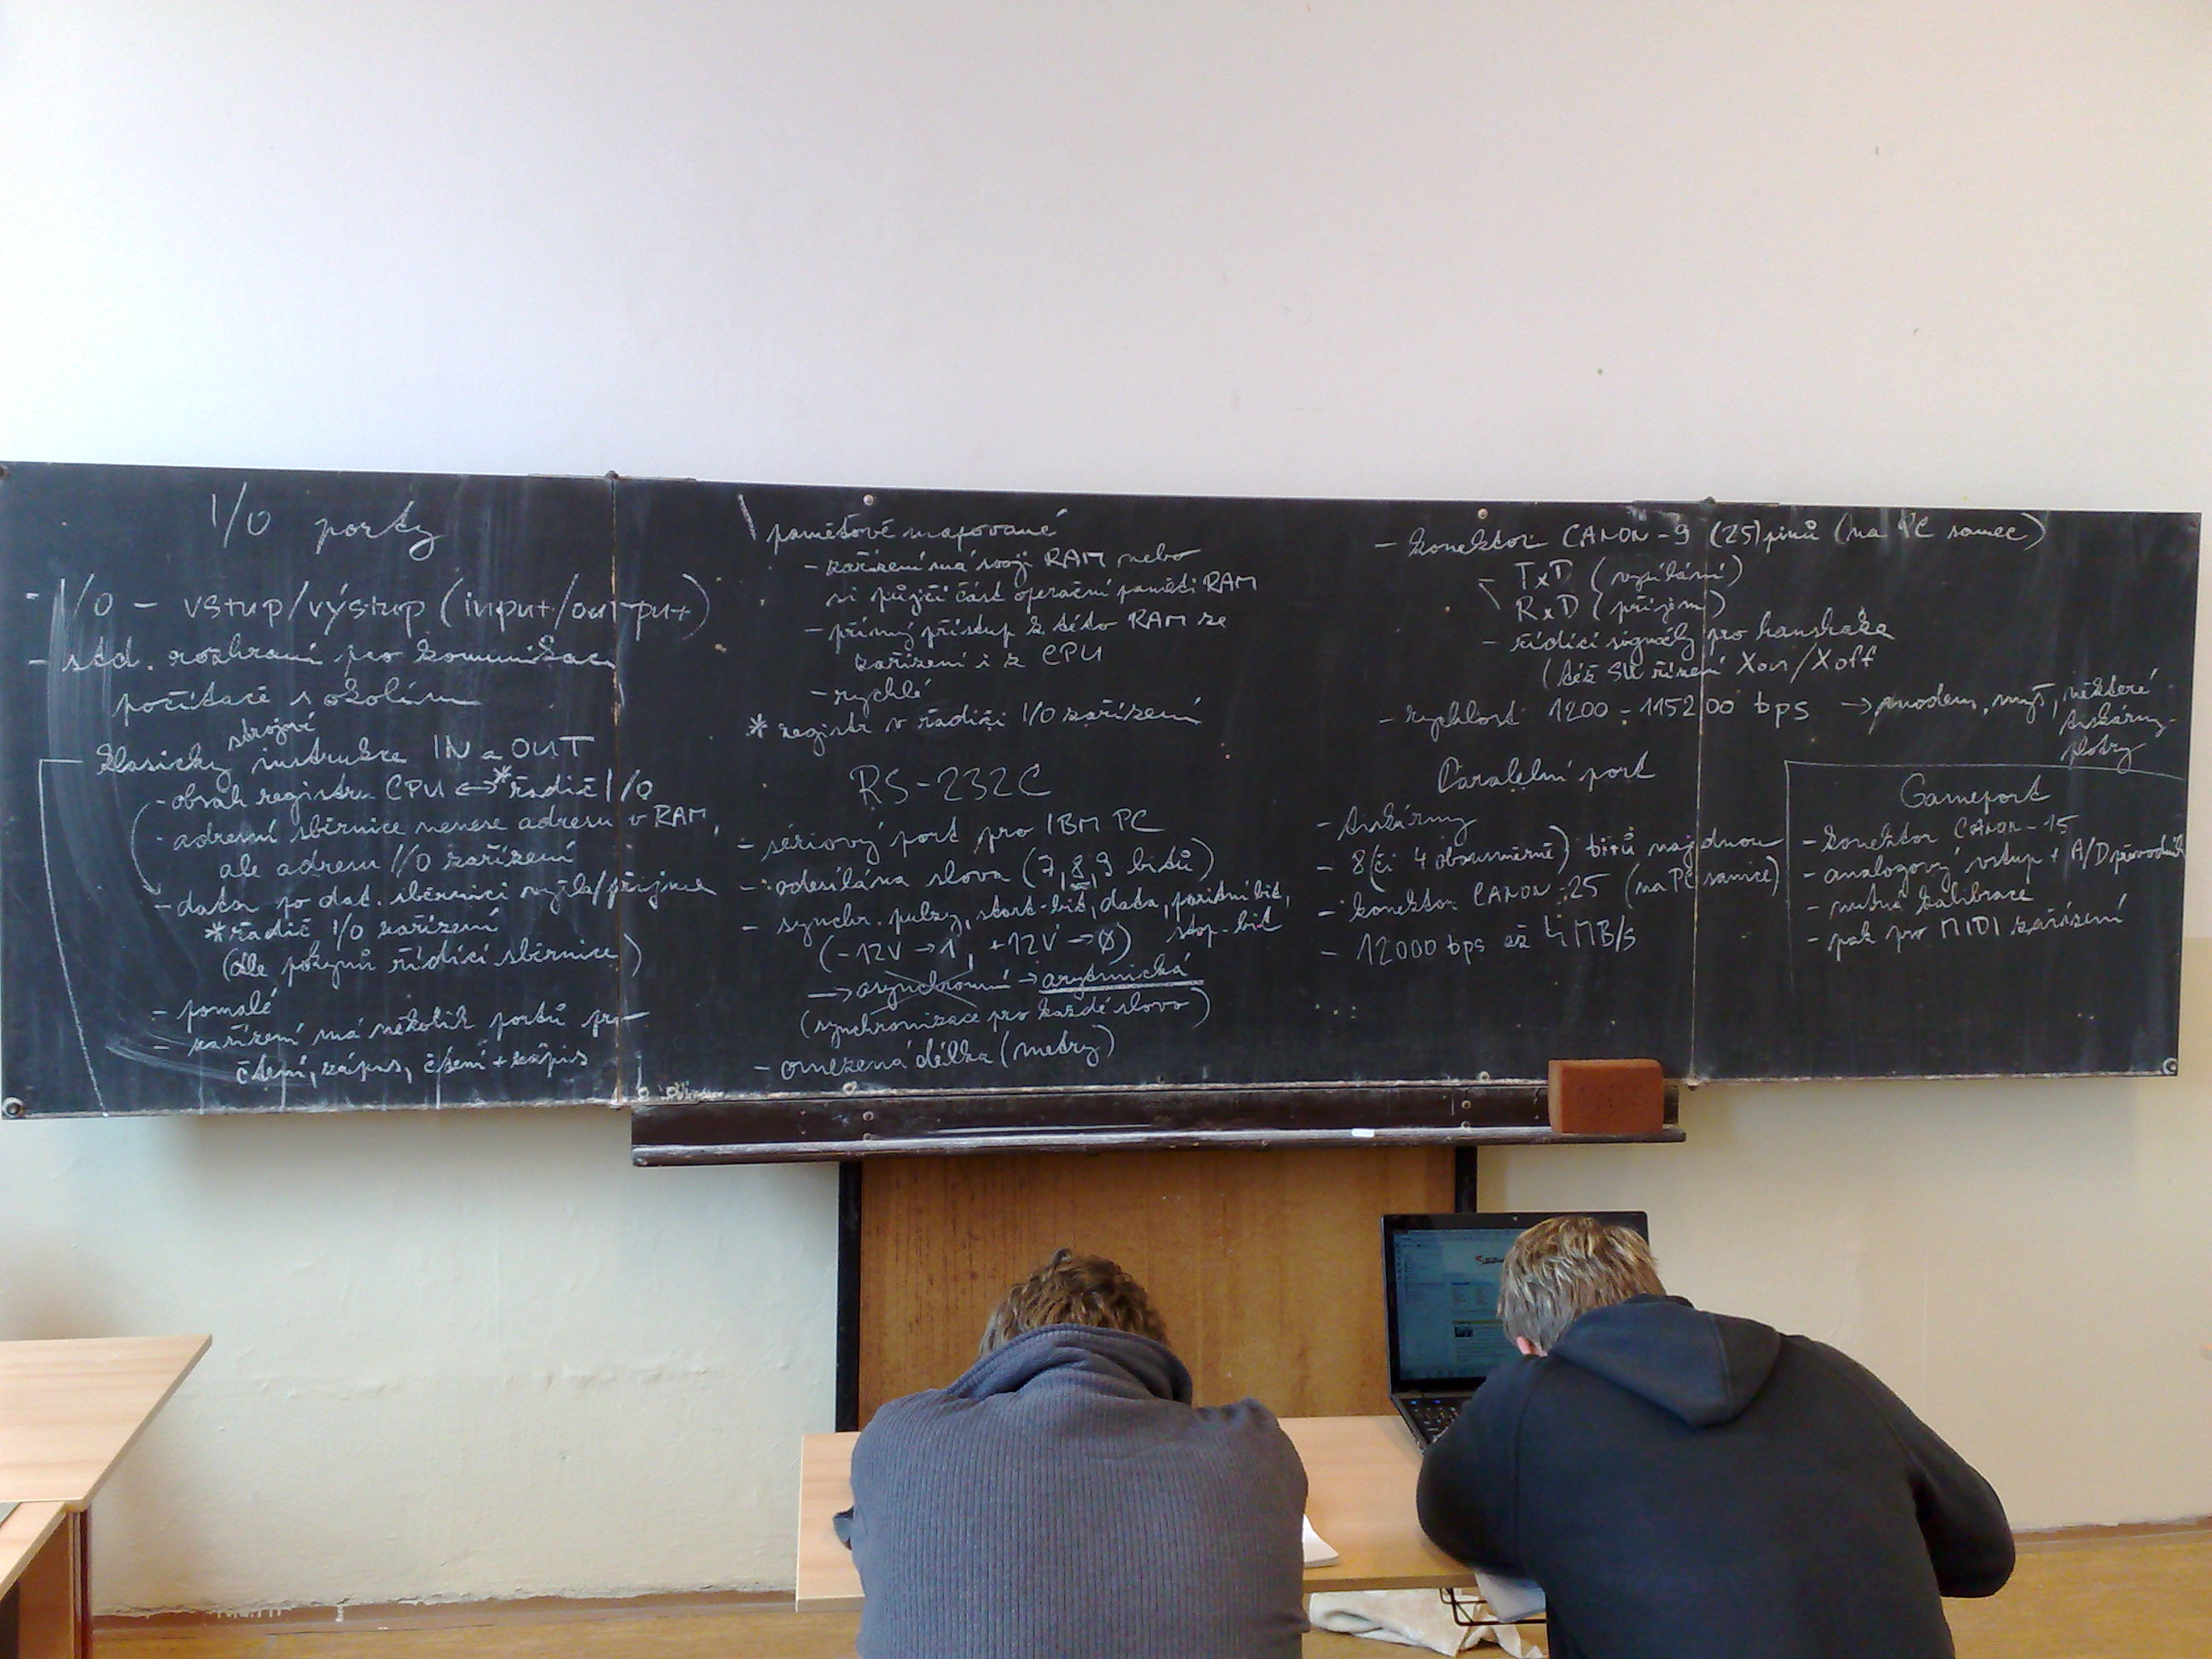 I/O porty
- I/O - vstup/výstup (input/output)
- std. rozhraní pro komunikaci
počítače s okolím
strojové
klasicky instrukce IN a OUT
- obsah registru CPU ↔ *řadič I/O
- adresní sběrnice nenese adresu v RAM,
ale adresu I/O zařízení
- data po dat. sběrnici vysílá/přijme
*řadič I/O zařízení
(dle pokynů řídící sběrnice)
- pomalé
- zařízení má několik portů pro
čtení, zápis, čtení + zápis
paměťově mapované
- zařízení má svoji RAM nebo
si půjčí část operační paměti RAM
- přímý přístup k této RAM ze
zařízení i z CPU
- rychlé
* registr v řadiči I/O zařízení
RS-232C
- sériový port pro IBM PC
- odesílána slova (7,8,9 bitů)
- synchr. pulzy, start-bit, data, paritní bit,
(-12V → 1, +12V → 0) stop-bit
→ asynchronní → arytmická
(synchronizace pro každé slovo)
- omezená délka (metry)
- konektor CANON-9 (25) pinů (na PC samec)
- TxD (vysílání)
RxD (příjem)
- řídící signály pro hanshake
(též SW řízení Xon/Xoff
- rychlost 1200 ÷ 115200 bps → modem, myš, některé
tiskárny,
plotry
Paralelní port
- tiskárny
- 8 (či 4 obousměrně) bitů najednou
- konektor CANON-25 (na PC samice)
- 12000 bps až 4 MB/s
Gameport
- konektor CANON-15
- analogový vstup + A/D převodník
- nutná kalibrace
- pak pro MIDI zařízení